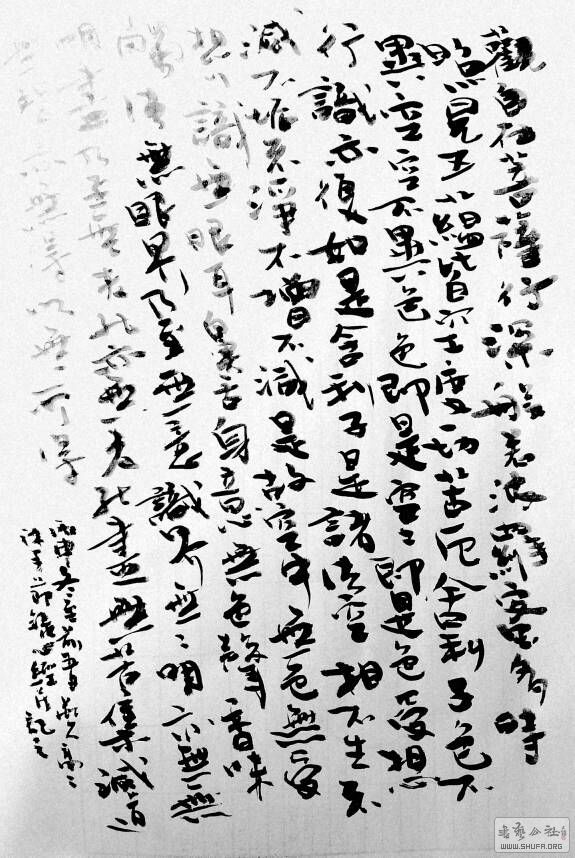 觀自在菩薩行深般若波羅蜜多時
照見五蘊皆空度一切苦厄舍利子色不
異空空不異色色即是空空即是色受想
行識亦復如是舍利子是諸法空相不生不
滅不垢不淨不增不減是故空中無色無受
想行識無眼耳鼻舌身意無色聲香味
觸法無眼界乃至無意識界無無明亦無無
明盡乃至無老死亦無老死盡無苦集滅道
無智亦無得以無所得
丙申冬
節錄心經
記之
書藝公社
WWW.SHUFA.ORG